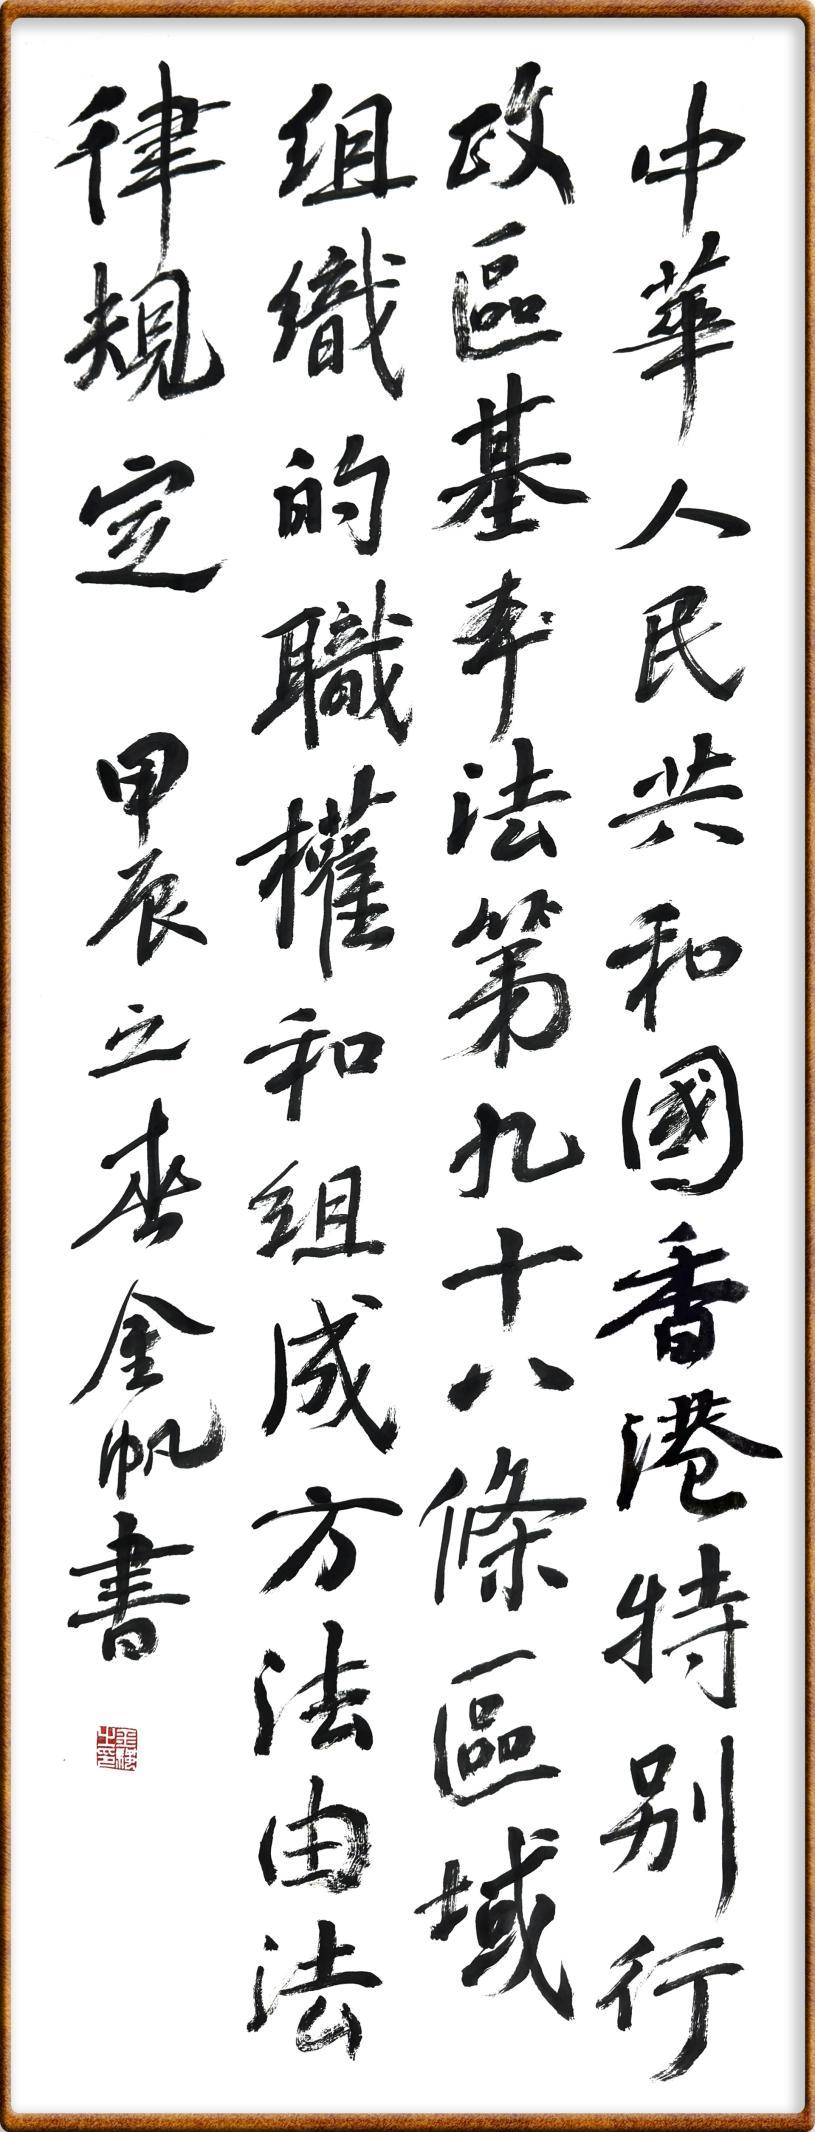 中華人民共和國香港特别行
政區基本法第九十八條區域
組織的職權和組成方法由法
律規定 甲辰之春金帆書